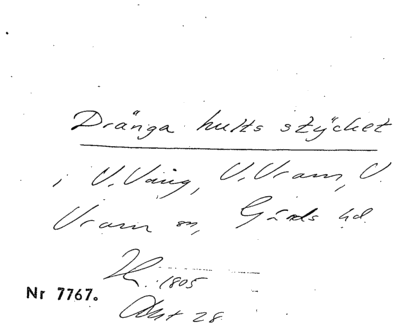 Drängahults stycket
i V. Vång, V. Vram, V.
Vram sn, Gärds hd.
1805
Nr 7767.
Akt 28